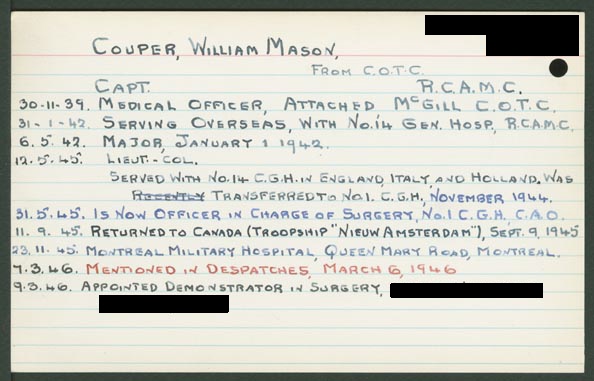 COUPER, WILLIAM MASON,
FROM C.O.T.C.
CAPT. R.C.A.M.C.
30-11-39. MEDICAL OFFICER, ATTACHED McGILL C.O.T.C.
31-1-42. SERVING OVERSEAS, WITH No.14 GEN. HOSP., R.C.A.M.C.
6.5.42. MAJOR, JANUARY 1 1942.
12.5.45. LIEUT.-COL.
SERVED WITH No.14 C.G.H. IN ENGLAND, ITALY, AND HOLLAND. WAS
RECENTLY TRANSFERRED TO No1. C.G.H, NOVEMBER 1944.
31.5.45. IS NOW OFFICER IN CHARGE OF SURGERY, No.1 C.G.H, C.A.O.
11.9.45. RETURNED TO CANADA (TROOPSHIP "NIEUW AMSTERDAM"), SEPT. 9, 1945
23.11.45. MONTREAL MILITARY HOSPITAL, QUEEN MARY ROAD, MONTREAL.
7.3.46. MENTIONED IN DESPATCHES, MARCH 6, 1946
9.3.46. APPOINTED DEMONSTRATOR IN SURGERY,